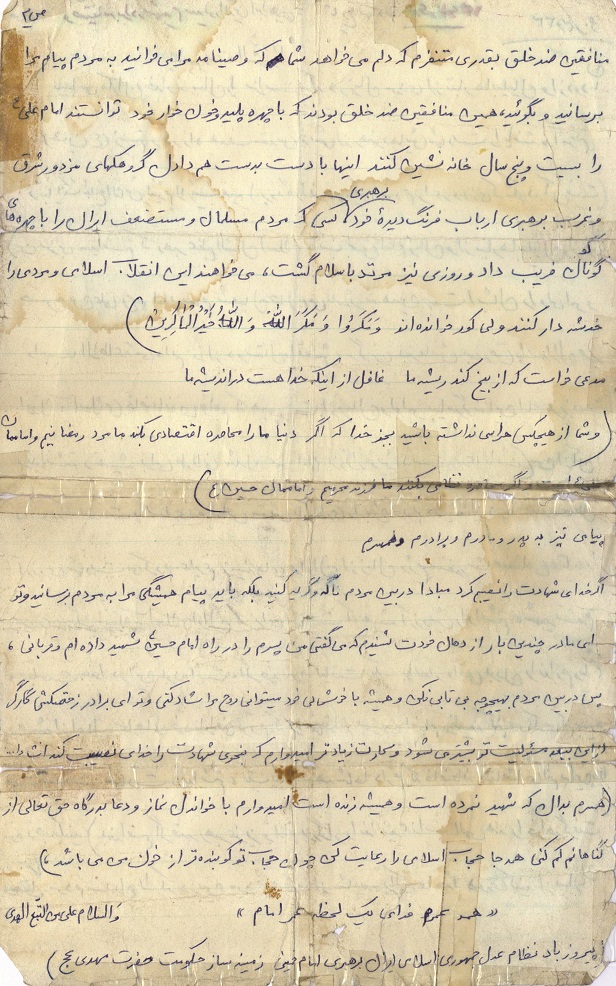 ص ۲
منافقین ضد خلق بقدری متنفرم که دلم می خواهد شما که وصیتنامه مرا می خوانید به مردم پیام مرا
برسانید و بگوئید، همین منافقین ضد خلق بودند که با چهره پلید و خوار خود توانستند امام علی ع
را بیست و پنج سال خانه نشین کنند اینها با دست بدست هم دادن گروهکهای مزدور شرق
و غرب برهبری ارباب فرنگ دیدۀ خود برهبری کسی که مردم مسلمان و مستضعف ایران را با چهره های
گوناگون فریب داد و روزی نیز مرتد باسلام گشت، می خواهند این انقلاب اسلامی و مردمی را
خدشه دار کنند ولی کور خوانده اند وَمَکَرُوا وَ مَکَرَ اللهُ وَ اللهُ خَیْرُ الْمَاکِرِینَ )
مدعی خواست که از بیخ کند ریشه ما غافل از اینکه خدا هست در اندیشه ما
( و شما از هیچکس هراسی نداشته باشید بجز خدا که اگر دنیا ما را محاصره اقتصادی بکند ما مرد رمضانیم و اماممان
است و اگر نظامی بکنند ما فرزند محرمیم و اماممان حسین ع )
پیامی نیز به پدر و مادرم و برادرم و همسرم
اگر خدای شهادت را نصیبم کرد مبادا در بین مردم ناله و گریه کنید بلکه باید پیام همیشگی مرا به مردم برسانید و تو
ای مادر چندین بار از دهان خودت شنیدم که می گفتی من پسرم را در راه امام حسین ع شهید داده ام و قربانی ،
پس در بین مردم بهیچوجه بی تابی نکن و همیشه با خوشحالی خود میتوانی روح مرا شاد کنی و تو ای برادر زحمتکش کارگر
از این ببعد مسئولیت تو بیشتر می شود و کارت زیادتر امیدوارم که شهادت را خدای نصیبت کند انشاء ا...
(همسرم بدان که شهید نمرده است و همیشه زنده است امیدوارم با خواندن نماز و دعا بدرگاه حق تعالی از
گناهانم کم کنی همه جا حجاب اسلامی را رعایت کن چون حجاب تو کوبنده تر از خون من می باشد ، )
« همه عمرم فدای یک لحظه عمر امام » والسلام علی من التبع الهدی
( پیروز باد نظام عدل جمهوری اسلامی ایران برهبری امام خمینی زمینه ساز حکومت حضرت مهدی عج )